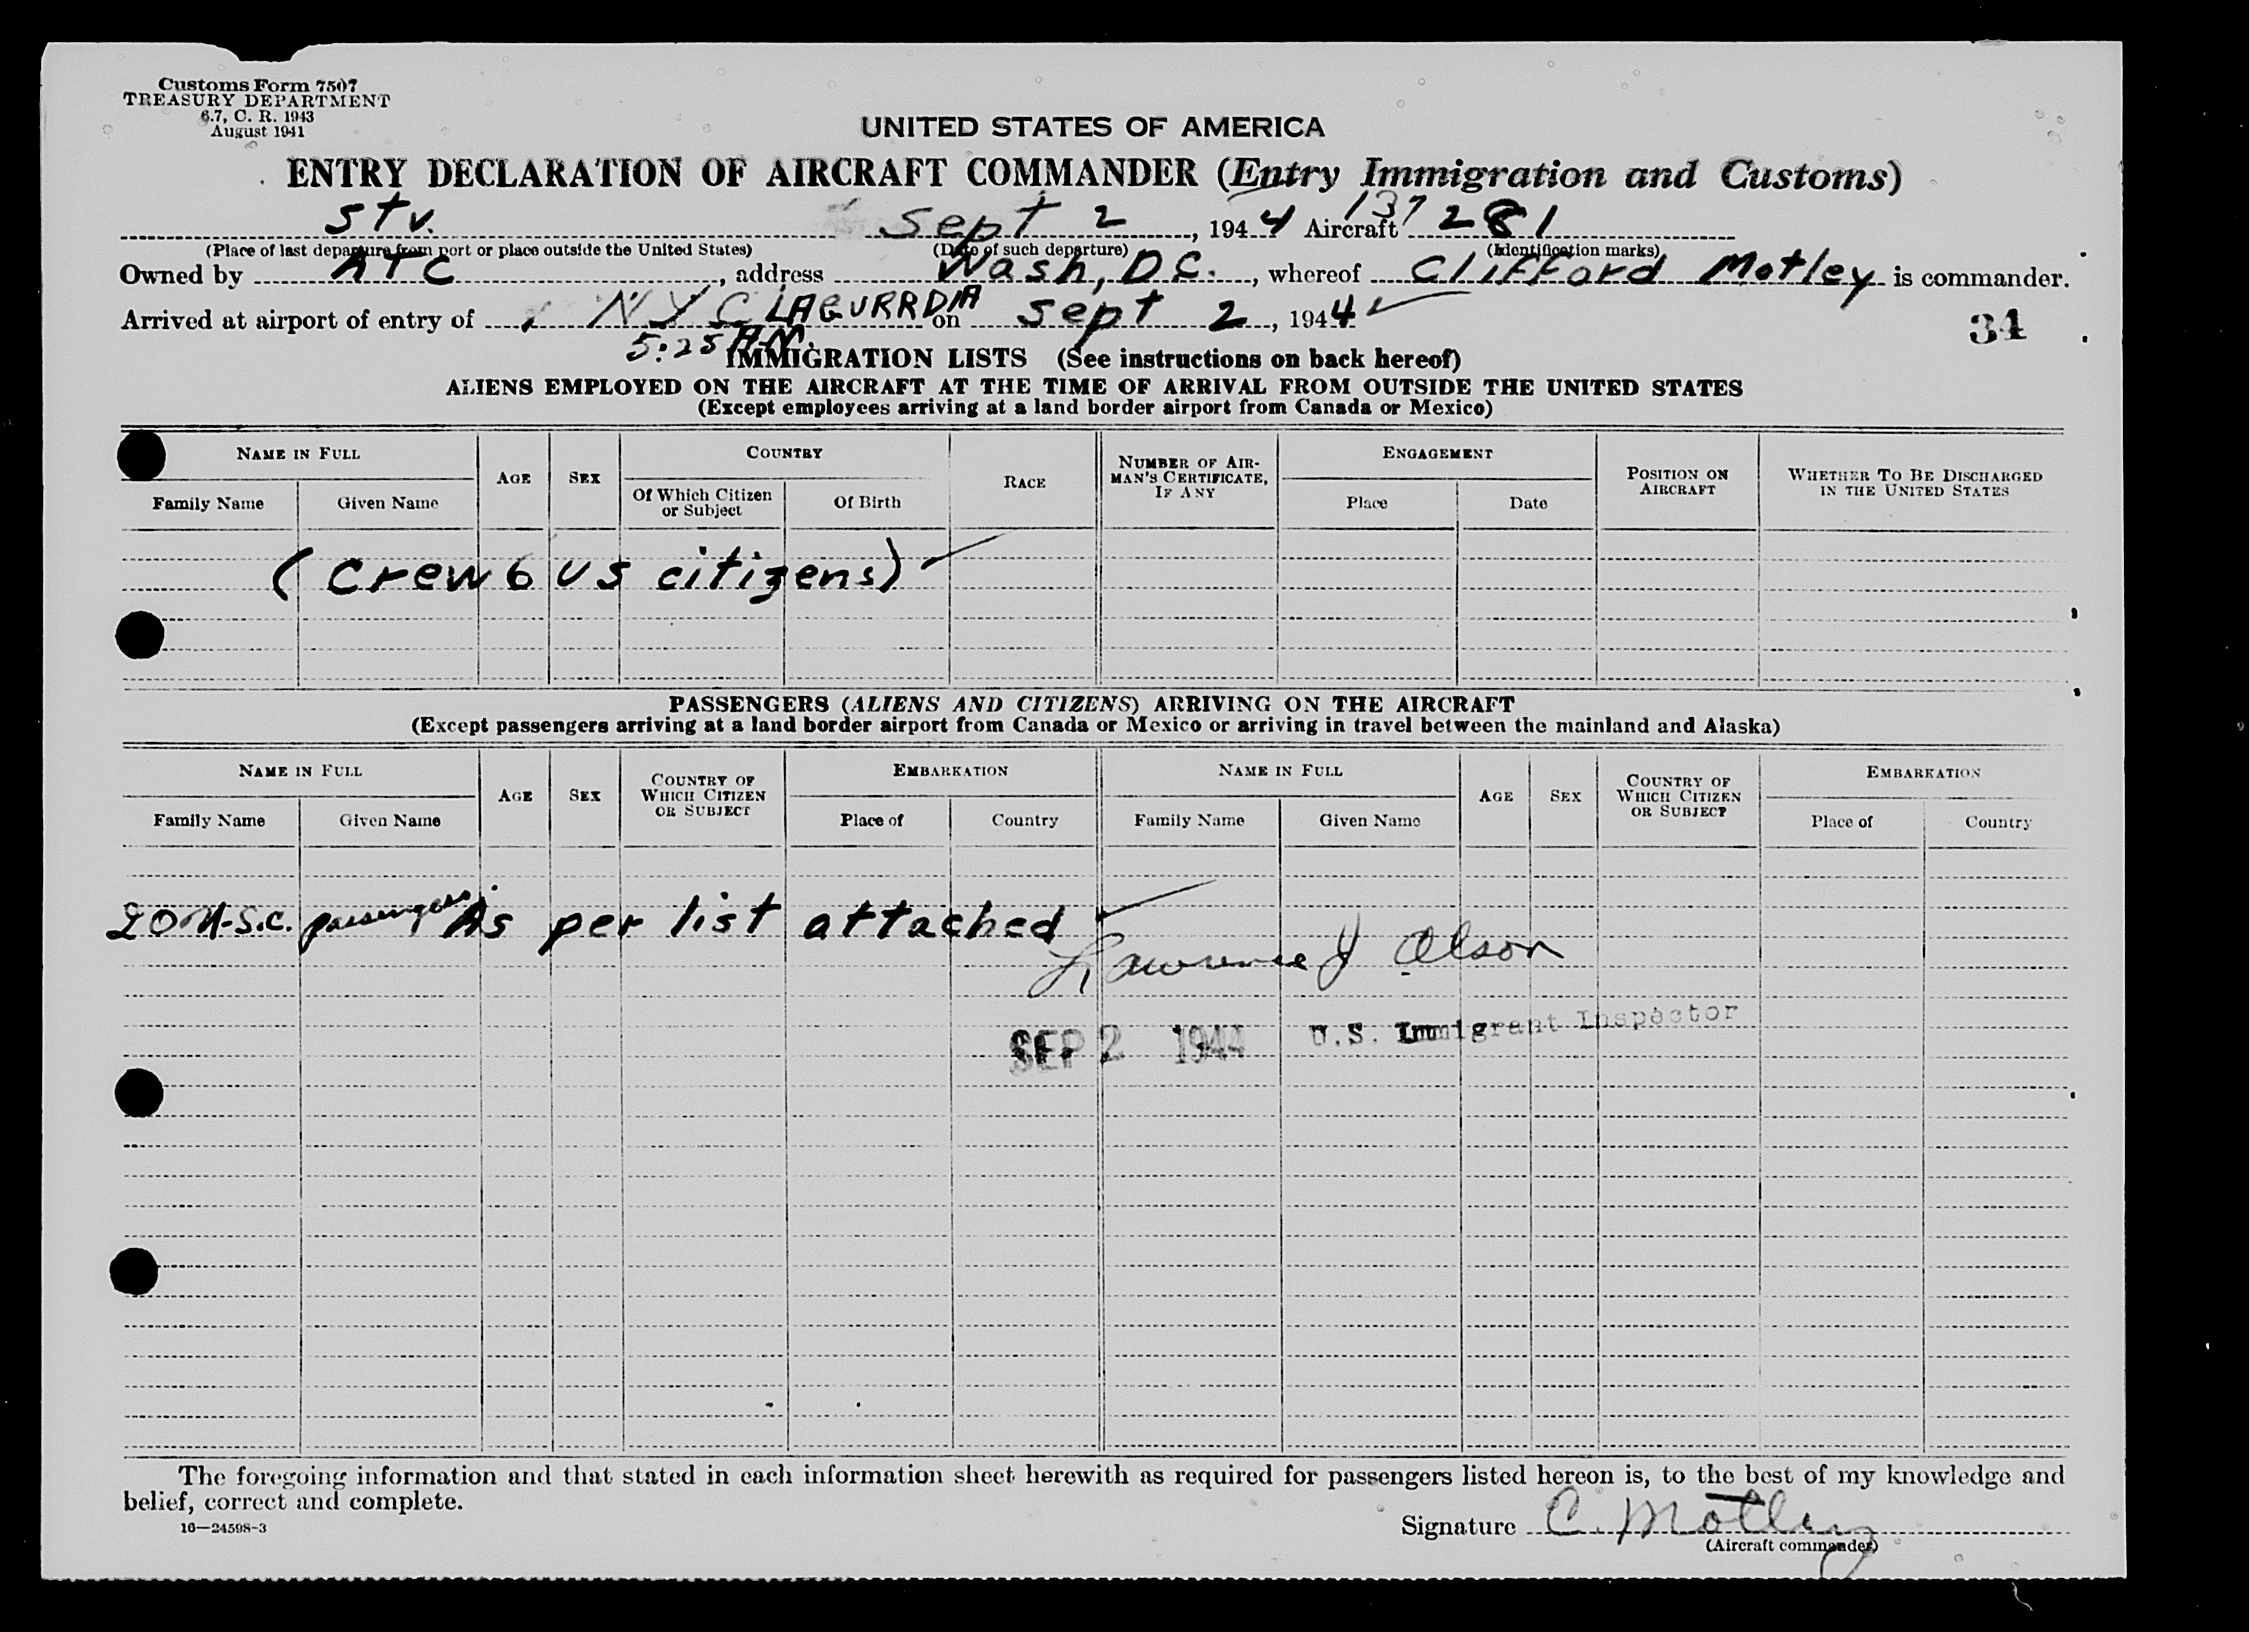 Customs Form 7507
TREASURY DEPARTMENT
6.7, C. R. 1943
August 1941
UNITED STATES OF AMERICA
ENTRY DECLARATION OF AIRCRAFT COMMANDER (Entry Immigration and Customs)
Stv. Sept 2, 1944 Aircraft 137281
(Place of last departure from port or place outside the United States) (Date of such departure) (Identification marks)
Owned by ATC, address Wash, D.C., whereof Clifford Motley is commander.
Arrived at airport of entry of NYC LAGURRDIA on Sept 2, 1944
34
5:25 A.M.
IMMIGRATION LISTS (See instructions on back hereof)
ALIENS EMPLOYED ON THE AIRCRAFT AT THE TIME OF ARRIVAL FROM OUTSIDE THE UNITED STATES
(Except employees arriving at a land border airport from Canada or Mexico)
NAME IN FULL AGE SEX COUNTRY RACE NUMBER OF AIRMAN'S CERTIFICATE, IF ANY ENGAGEMENT POSITION ON AIRCRAFT WHETHER TO BE DISCHARGED IN THE UNITED STATES
Family Name Given Name Of Which Citizen or Subject Of Birth Place Date
(Crew 6 US citizens)
PASSENGERS (ALIENS AND CITIZENS) ARRIVING ON THE AIRCRAFT
(Except passengers arriving at a land border airport from Canada or Mexico or arriving in travel between the mainland and Alaska)
NAME IN FULL AGE SEX COUNTRY OF WHICH CITIZEN OR SUBJECT EMBARKATION NAME IN FULL AGE SEX COUNTRY OF WHICH CITIZEN OR SUBJECT EMBARKATION
Family Name Given Name Place of Country Family Name Given Name Place of Country
20 U.S.C. passengers As per list attached
Lawrence J Olson
SEP 2 1944 U.S. Immigrant Inspector
The foregoing information and that stated in each information sheet herewith as required for passengers listed hereon is, to the best of my knowledge and
belief, correct and complete.
16—24598-3
Signature C. Motley
(Aircraft commander)